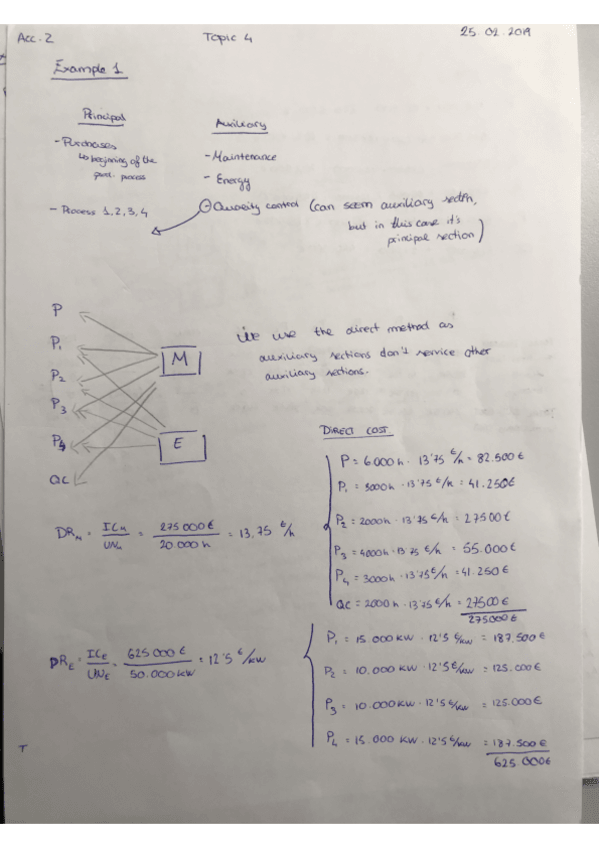 Acc. 2
Topic 4
25. 02. 2019
Example 1
Principal
- Purchases
↳ beginning of the
prod. process
- Process 1, 2, 3, 4
Auxiliary
- Maintenance
- Energy
Quality control (can seem auxiliary
but in this case it's
principal section)
P
P1
P2
P3
P4
QC
M
E
We use the direct method as
auxiliary sections don't service other
auxiliary sections.
DIRECT COST
P = 6000h · 13'75 €/h = 82.500€
P1 = 3000h · 13'75 €/h = 41.250€
P2 = 2000h · 13'75 €/h = 27500€
P3 = 4000h · 13'75 €/h = 55.000€
P4 = 3000h · 13'75 €/h = 41.250€
QC = 2000h · 13'75 €/h = 27500€
275000€
DRM = ICM / UNM = 275000€ / 20.000h = 13,75 €/h
P1 = 15.000 KW · 12'5 €/kw = 187.500€
P2 = 10.000 KW · 12'5 €/kw = 125.000€
P3 = 10.000 KW · 12'5 €/kw = 125.000€
P4 = 15.000 KW · 12'5 €/kw = 187.500€
625.000€
DRE = ICE / UNE = 625.000€ / 50.000KW = 12'5 €/kw
T